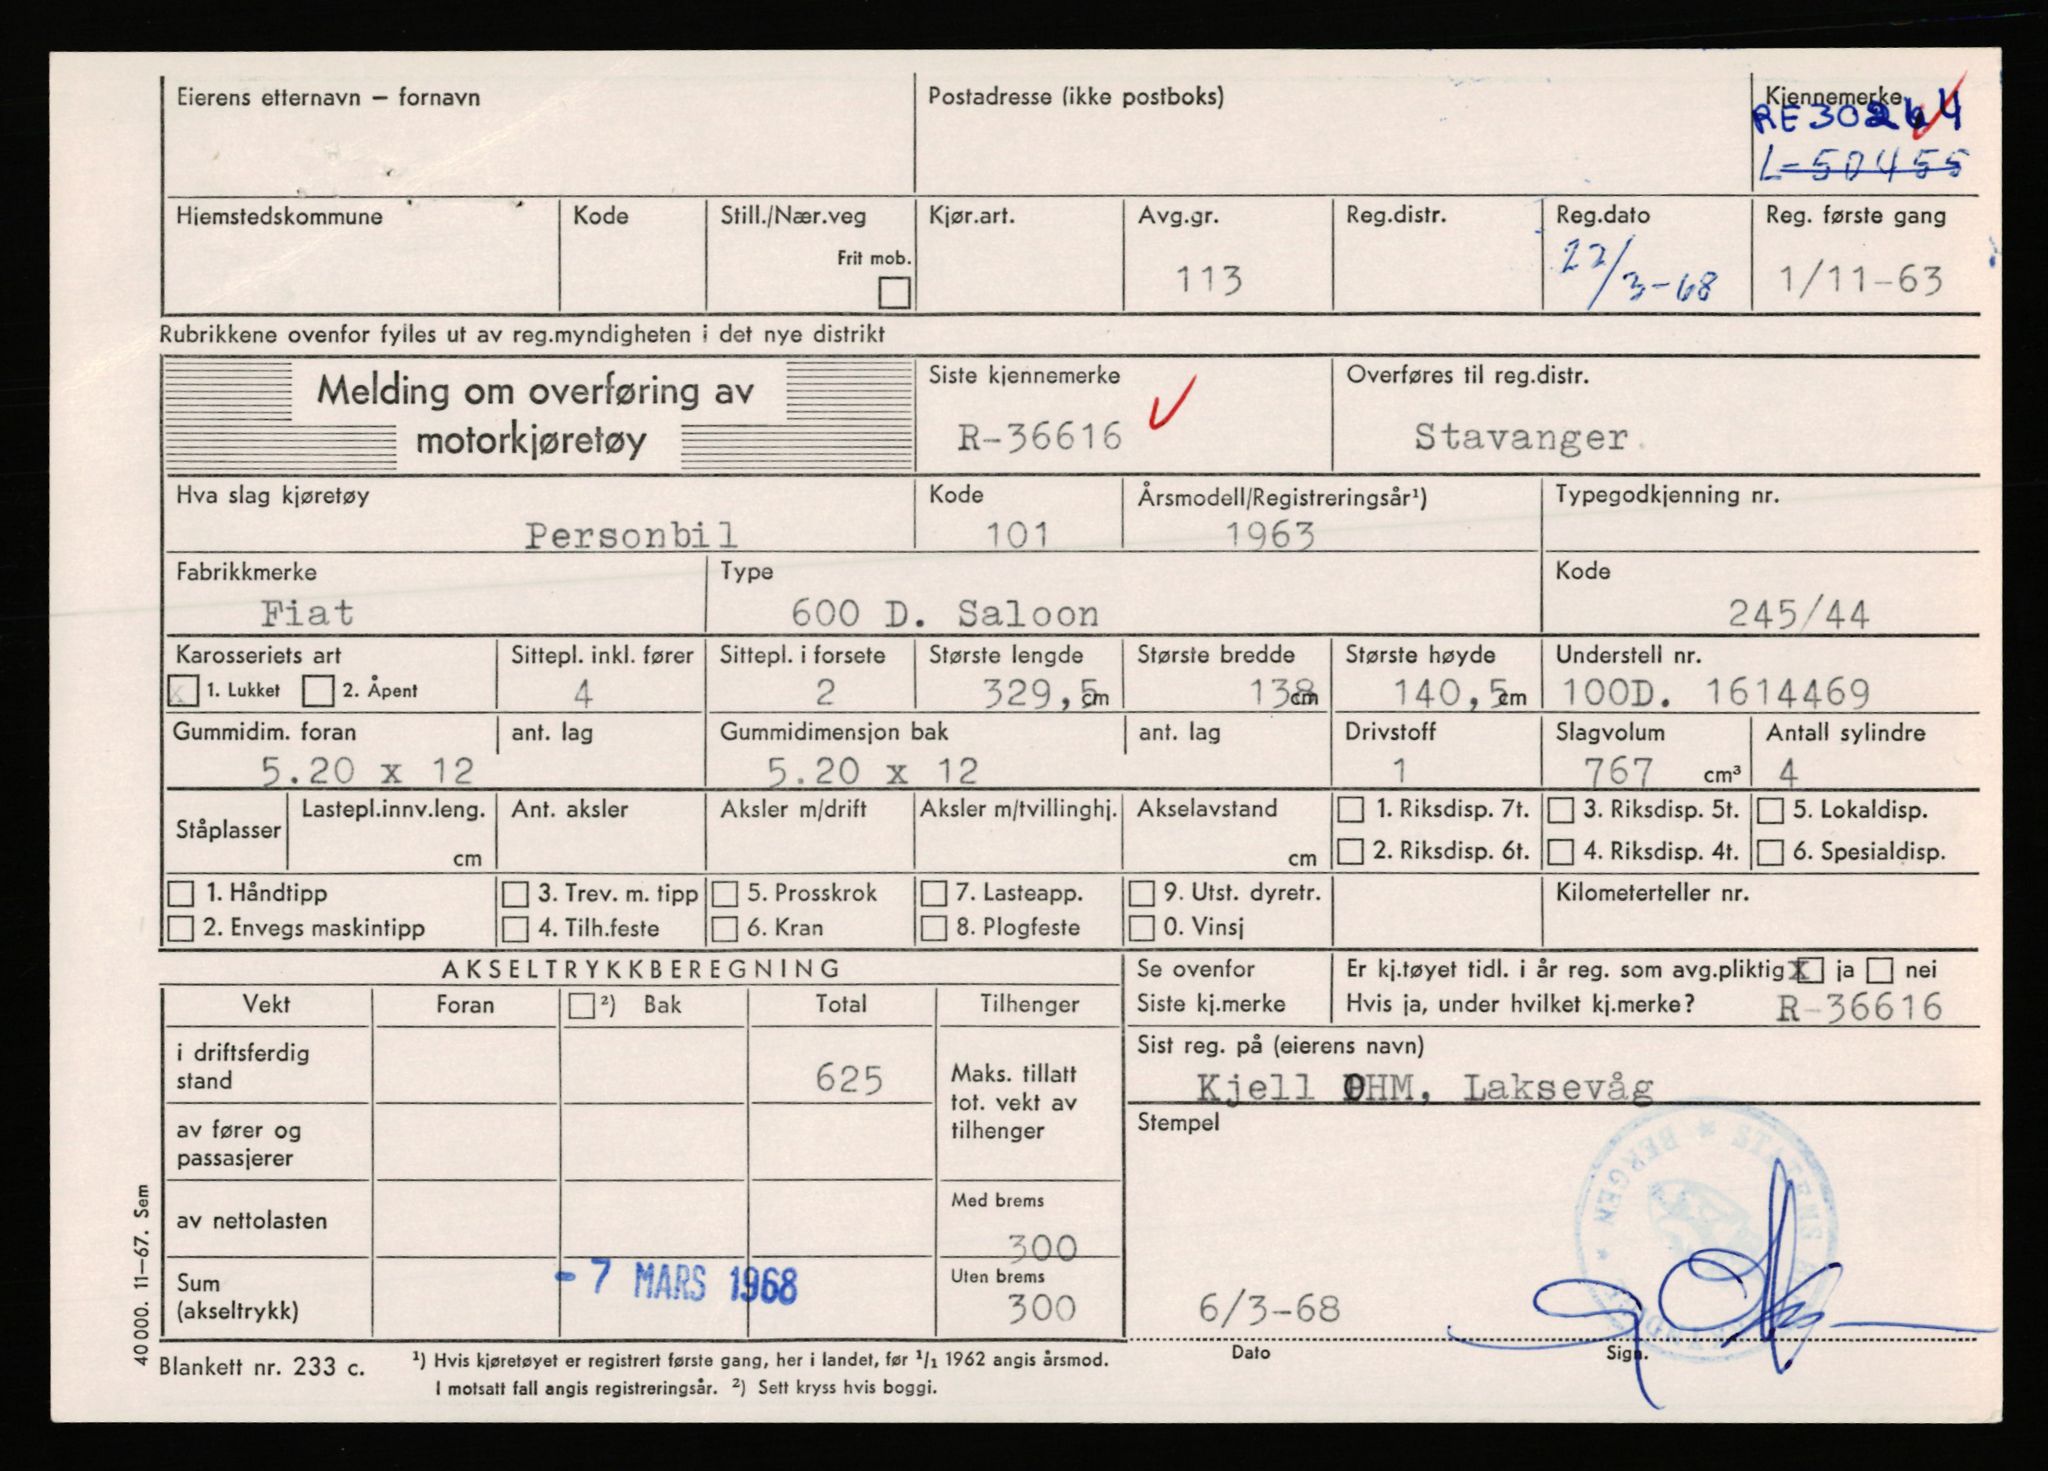 Eierens etternavn – fornavn
Postadresse (ikke postboks)
Kjennemerke
RE30264
L-50455
Hjemstedskommune
Kode
Still./Nær.veg
Frit mob.
Kjør.art.
Avg.gr.
113
Reg.distr.
Reg.dato
22/3-68
Reg. første gang
1/11-63
Rubrikkene ovenfor fylles ut av reg.myndigheten i det nye distrikt
Melding om overføring av
motorkjøretøy
Siste kjennemerke
R-36616
Overføres til reg.distr.
Stavanger
Hva slag kjøretøy
Personbil
Kode
101
Årsmodell/Registreringsår¹)
1963
Typegodkjenning nr.
Fabrikkmerke
Fiat
Type
600 D. Saloon
Kode
245/44
Karosseriets art
x 1. Lukket 2. Åpent
Sittepl. inkl. fører
4
Sittepl. i forsete
2
Største lengde
329,5 cm
Største bredde
138 cm
Største høyde
140,5 cm
Understell nr.
100D. 1614469
Gummidim. foran
5.20 x 12
ant. lag
Gummidimensjon bak
5.20 x 12
ant. lag
Drivstoff
1
Slagvolum
767 cm³
Antall sylindre
4
Ståplasser
Lastepl.innv.leng.
cm
Ant. aksler
Aksler m/drift
Aksler m/tvillinghj.
Akselavstand
cm
1. Riksdisp. 7t.
2. Riksdisp. 6t.
3. Riksdisp. 5t.
4. Riksdisp. 4t.
5. Lokaldisp.
6. Spesialdisp.
1. Håndtipp
2. Envegs maskintipp
3. Trev. m. tipp
4. Tilh.feste
5. Prosskrok
6. Kran
7. Lasteapp.
8. Plogfeste
9. Utst. dyretr.
0. Vinsj
Kilometerteller nr.
AKSELTRYKKBEREGNING
Vekt
Foran
²) Bak
Total
Tilhenger
i driftsferdig
stand
625
av fører og
passasjerer
av nettolasten
Sum
(akseltrykk)
- 7 MARS 1968
Maks. tillatt
tot. vekt av
tilhenger
Med brems
300
Uten brems
300
Se ovenfor
Siste kj.merke
Er kj.tøyet tidl. i år reg. som avg.pliktig X ja nei
Hvis ja, under hvilket kj.merke? R-36616
Sist reg. på (eierens navn)
Kjell OHM, Laksevåg
Stempel
BERGEN
6/3-68
Dato
Sign.
40 000. 11–67. Sem
Blankett nr. 233 c.
¹) Hvis kjøretøyet er registrert første gang, her i landet, før 1/1 1962 angis årsmod.
I motsatt fall angis registreringsår. ²) Sett kryss hvis boggi.